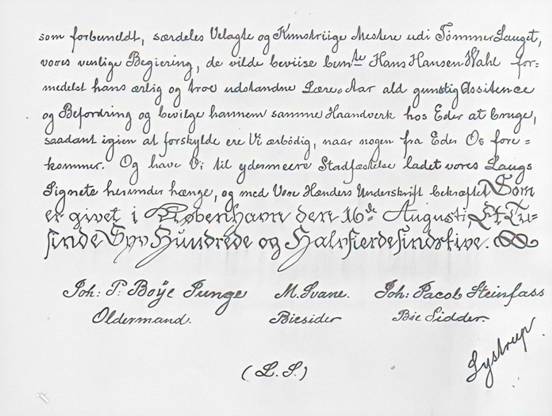 som forbemeldt, særdeles Velagte og Kunstriige Mestere udi Tømmer Lauget,
vores venlige Begiering, de vilde beviise bemte Hans Hansen Wahl for=
medelst hans ærlig og troe udstandne Lære Aar ald gunstig Assistence
og Befordring og bevilge hannem samme Haandverk hos Eder at bruge,
saadant igien at forskylde ere Vi arbødig, naar nogen fra Eder Os fore=
kommer. Og have Vi til ydermeere Stadfæstelse ladet vores Laugs
Signete herunder hænge, og med Vore Hænders Underskrift bekræftet Som
er givet i Kiøbenhavn den 16de Augusti, Et Tu=
sinde Syv Hundrede og Halvfierdesindstive.
Joh: P: Boÿe Junge M. Svane. Joh: Jacob Steinfass
Oldermand. Biesider Bie Sidder.
Lystrup.
(L. S.)